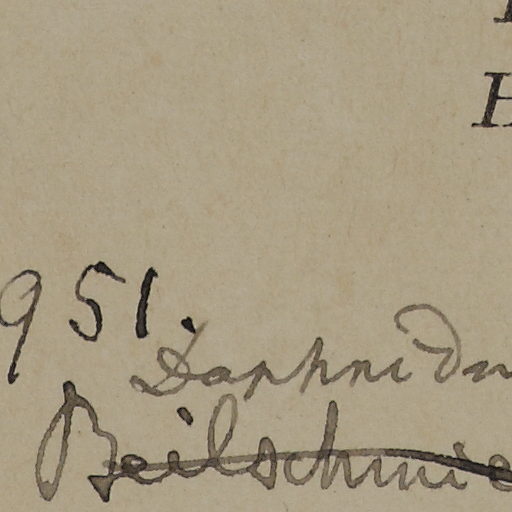 H
951.
Daphnidu
Beilschmie